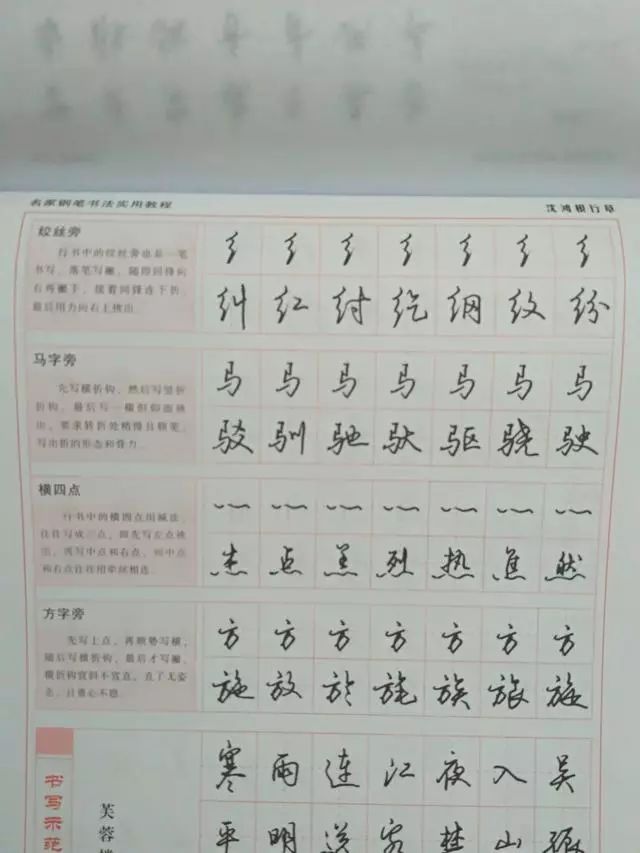 名家钢笔书法实用教程 沈鸿根行草
绞丝旁
行书中的绞丝旁也是一笔
书写，落笔写撇，随即回锋向
右再撇下，接着回锋连下折，
最后用力向右上挑出。
纠 红 纣 纥 纲 纹 纷
马字旁
先写横折钩，然后写竖折
折钩，最后写一横但仰面挑
出，要求转折处稍慢且顿笔，
写出折的形态和骨力。
马 马 马 马 马 马 马
驳 驯 驰 驮 驱 骁 驶
横四点
行书中的横四点用减法，
往往写成三点，即先写左点挑
出，再写中点和右点，而中点
和右点往往用牵丝相连。
杰 点 羔 烈 热 焦 然
方字旁
先写上点，再顺势写横，
随后写横折钩，最后才写撇。
横折钩宜斜不宜直，直了无姿
态，且重心不稳。
方 方 方 方 方 方 方
施 放 於 旄 族 旅 旋
书写示范
芙蓉楼
寒 雨 连 江 夜 入 吴
平 明 送 客 楚 山 孤